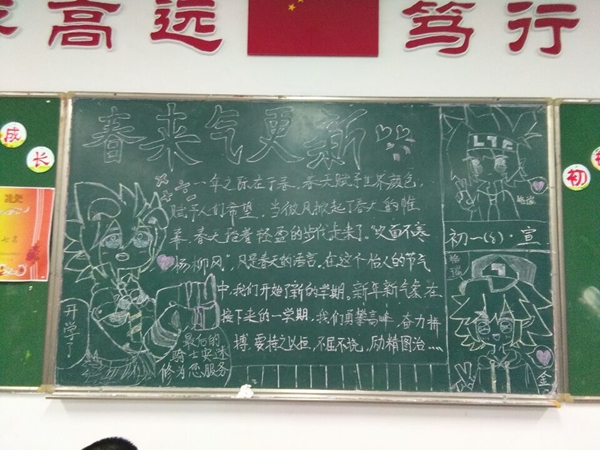 高远
笃行
成
长
初
春来气更新
一年之际在于春，春天赋予世界颜色，
赋予人们希望，当微风掀起了春天的帷
幕，春天踏着轻盈的步伐走来了。"吹面不寒
杨柳风"，凡是春天的语言。在这个怡人的节气
中，我们开始了新的学期。新年新气象，在
接下来的一学期，我们勇攀高峰，奋力拼
搏，要持之以恒，不屈不挠，励精图治……
开学了
最后的
骑士安迷
修为您服务
初一(5)·宣
金